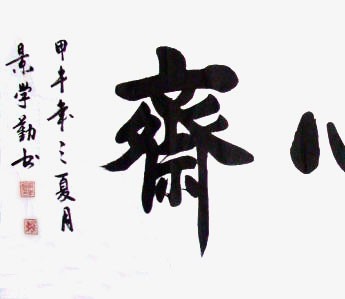 齋
甲午年之夏月
景学勤书